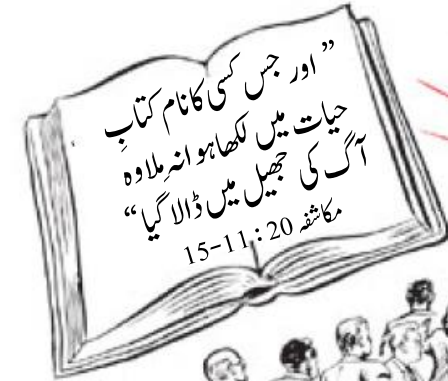 ” اور جس کسی کا نام کتابِ
حیات میں لکھا ہوا نہ ملا وہ
آگ کی جھیل میں ڈالا گیا “
مکاشفہ 20 : 11-15